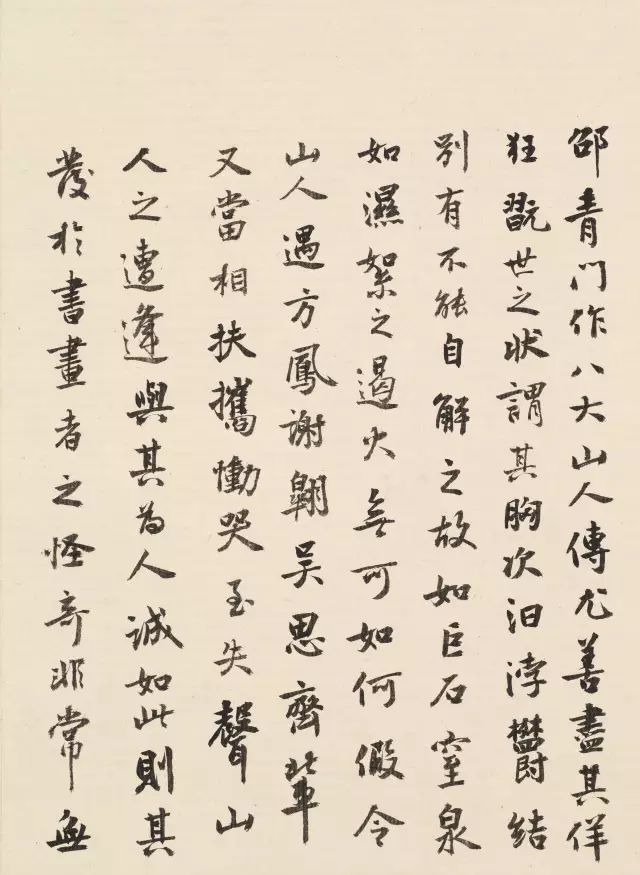 邵青门作八大山人傳尤善盡其佯
狂翫世之狀謂其胸次汨浡鬱結
別有不能自解之故如巨石窒泉
如濕絮之遏火無可如何假令
山人遇方鳳謝翺吴思齊輩
又當相扶攜慟哭至失聲山
人之遭逢與其為人誠如此則其
發於書畫者之怪奇非常無